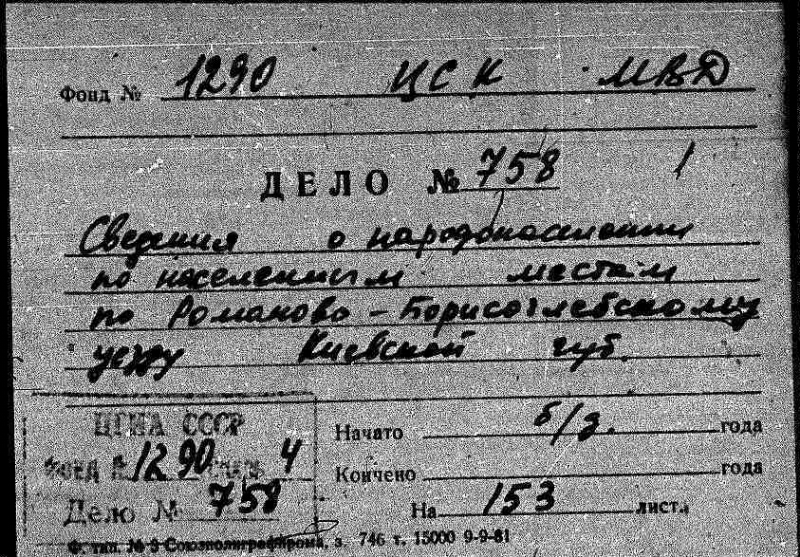 Фонд № 1290 ЦСК МВД
ДЕЛО № 758 1
Сведения о народонаселении
по населенным местам
по Романово-Борисоглебскому
уезду Киевской губ.
ЦГИА СССР
Фонд № 1290 4
Дело № 758
Начато б/д. года
Кончено года
На 153 лист.
Ф. тип. № 3 Союзполиграфпрома, з. 746 т. 15000 9-9-81